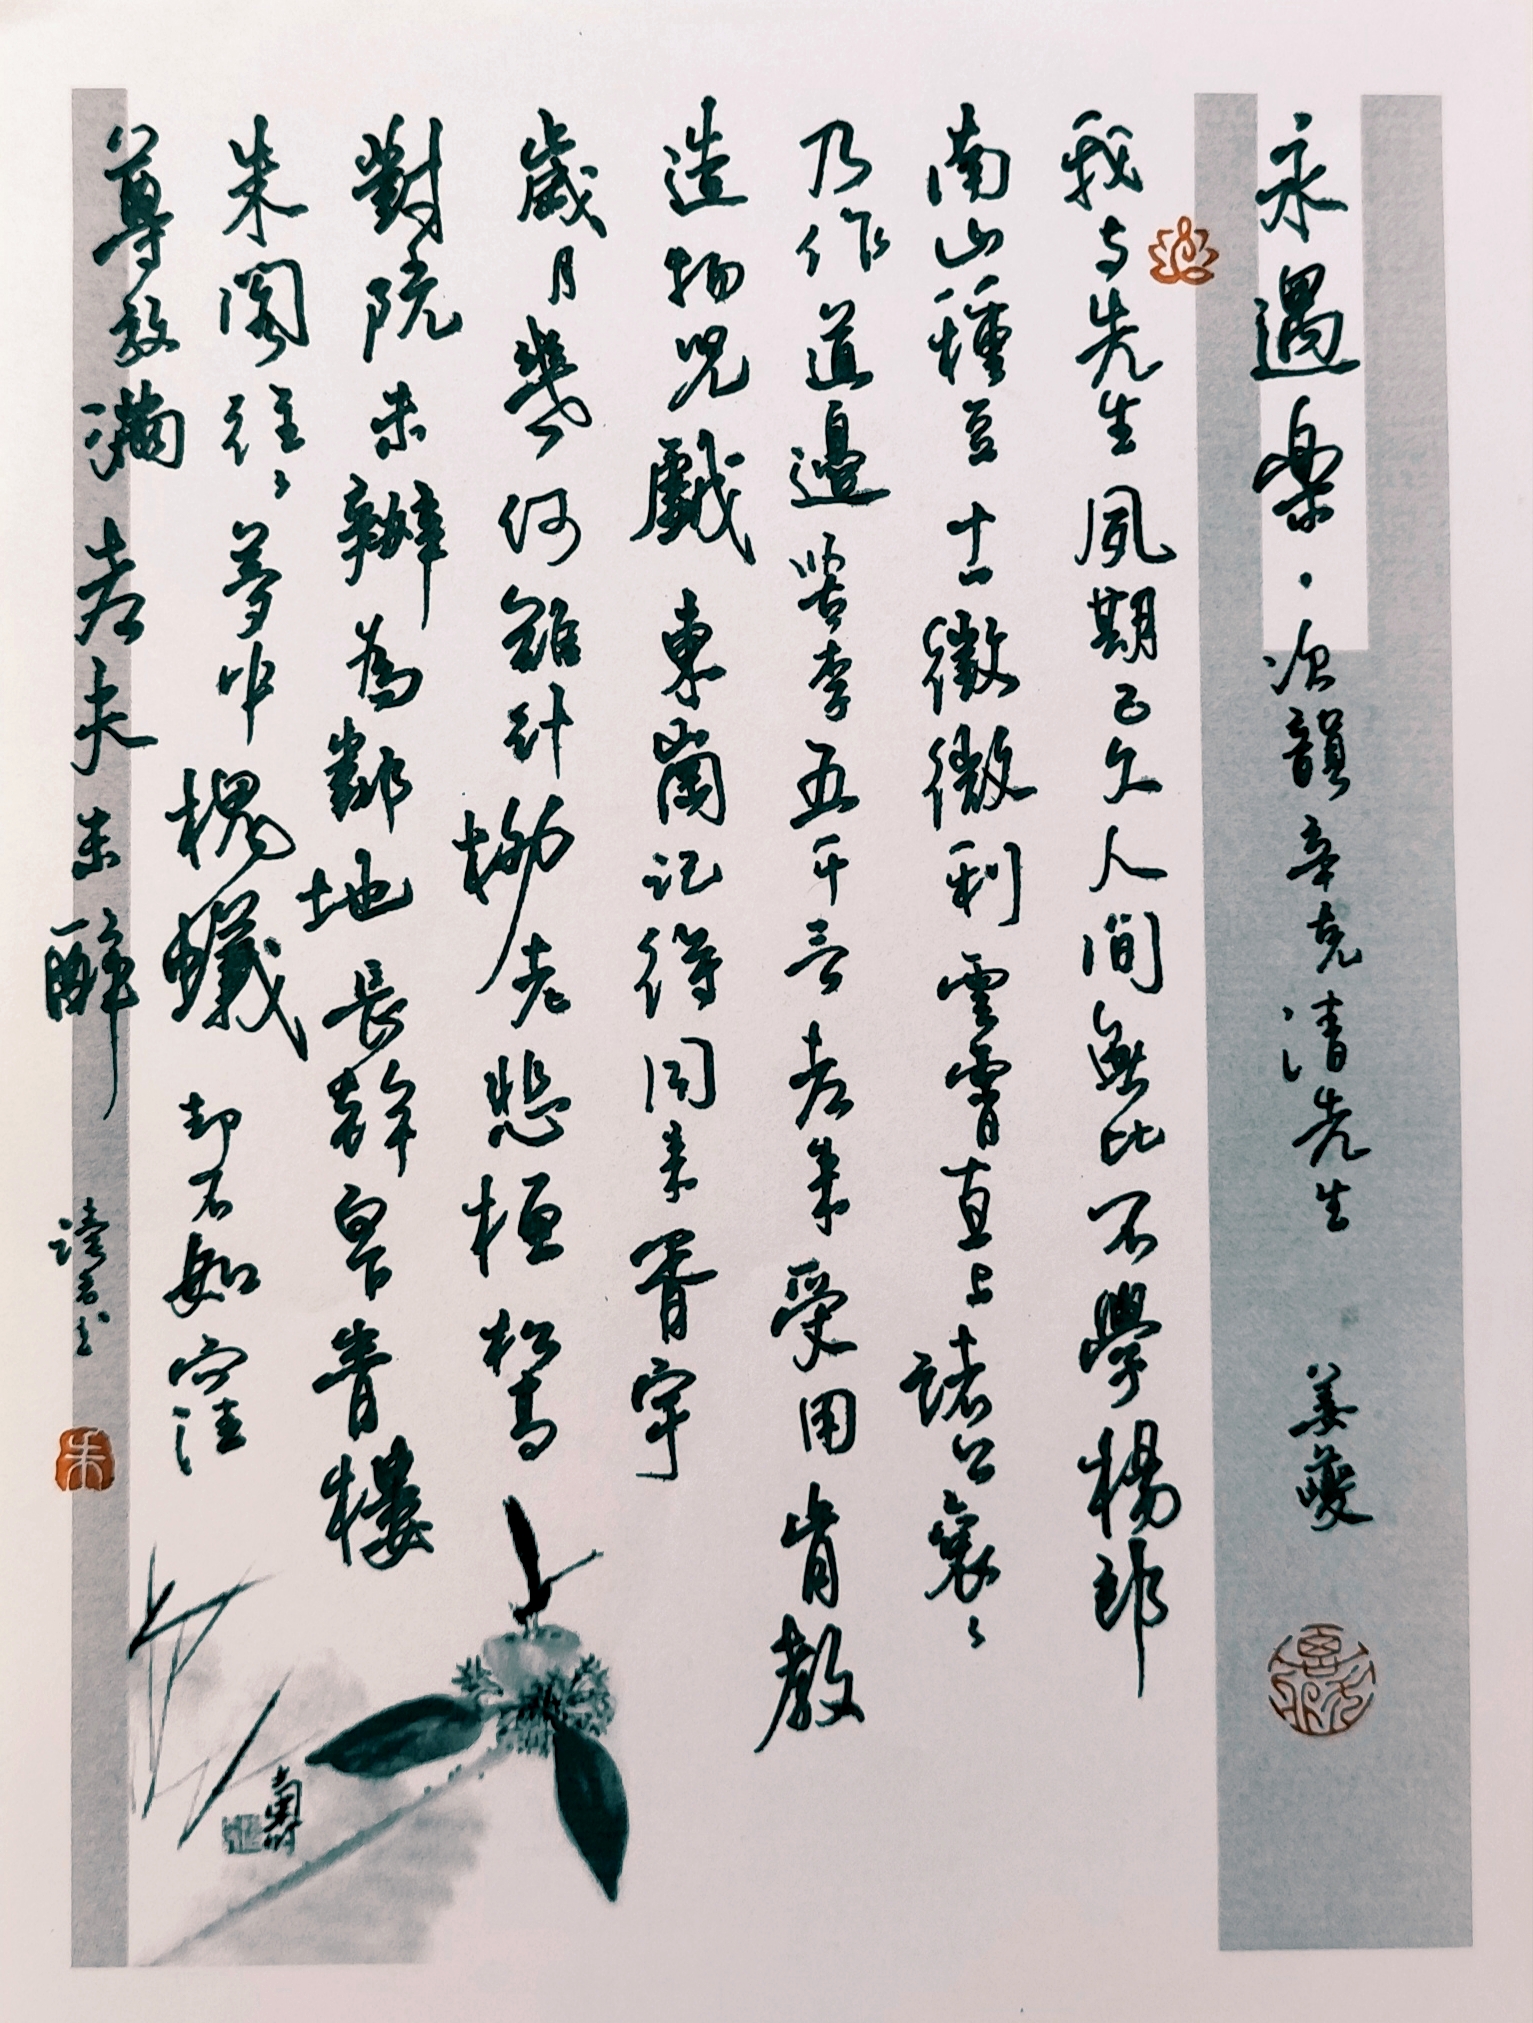 永遇樂·次韻辛克清先生 姜夔
我与先生夙期已久人間無比不學楊郎
南山種豆十一徵微利雲霄直上諸公衮々
乃作道邊苦李五千言老來受用肯教
造物兒戲東崗記得同来胥宇
歲月幾何難計柳老悲桓松高
對阮未辦為鄰地長幹白下青樓
朱閣往々夢中槐蟻却不如窪
尊放滿老夫未醉
朱